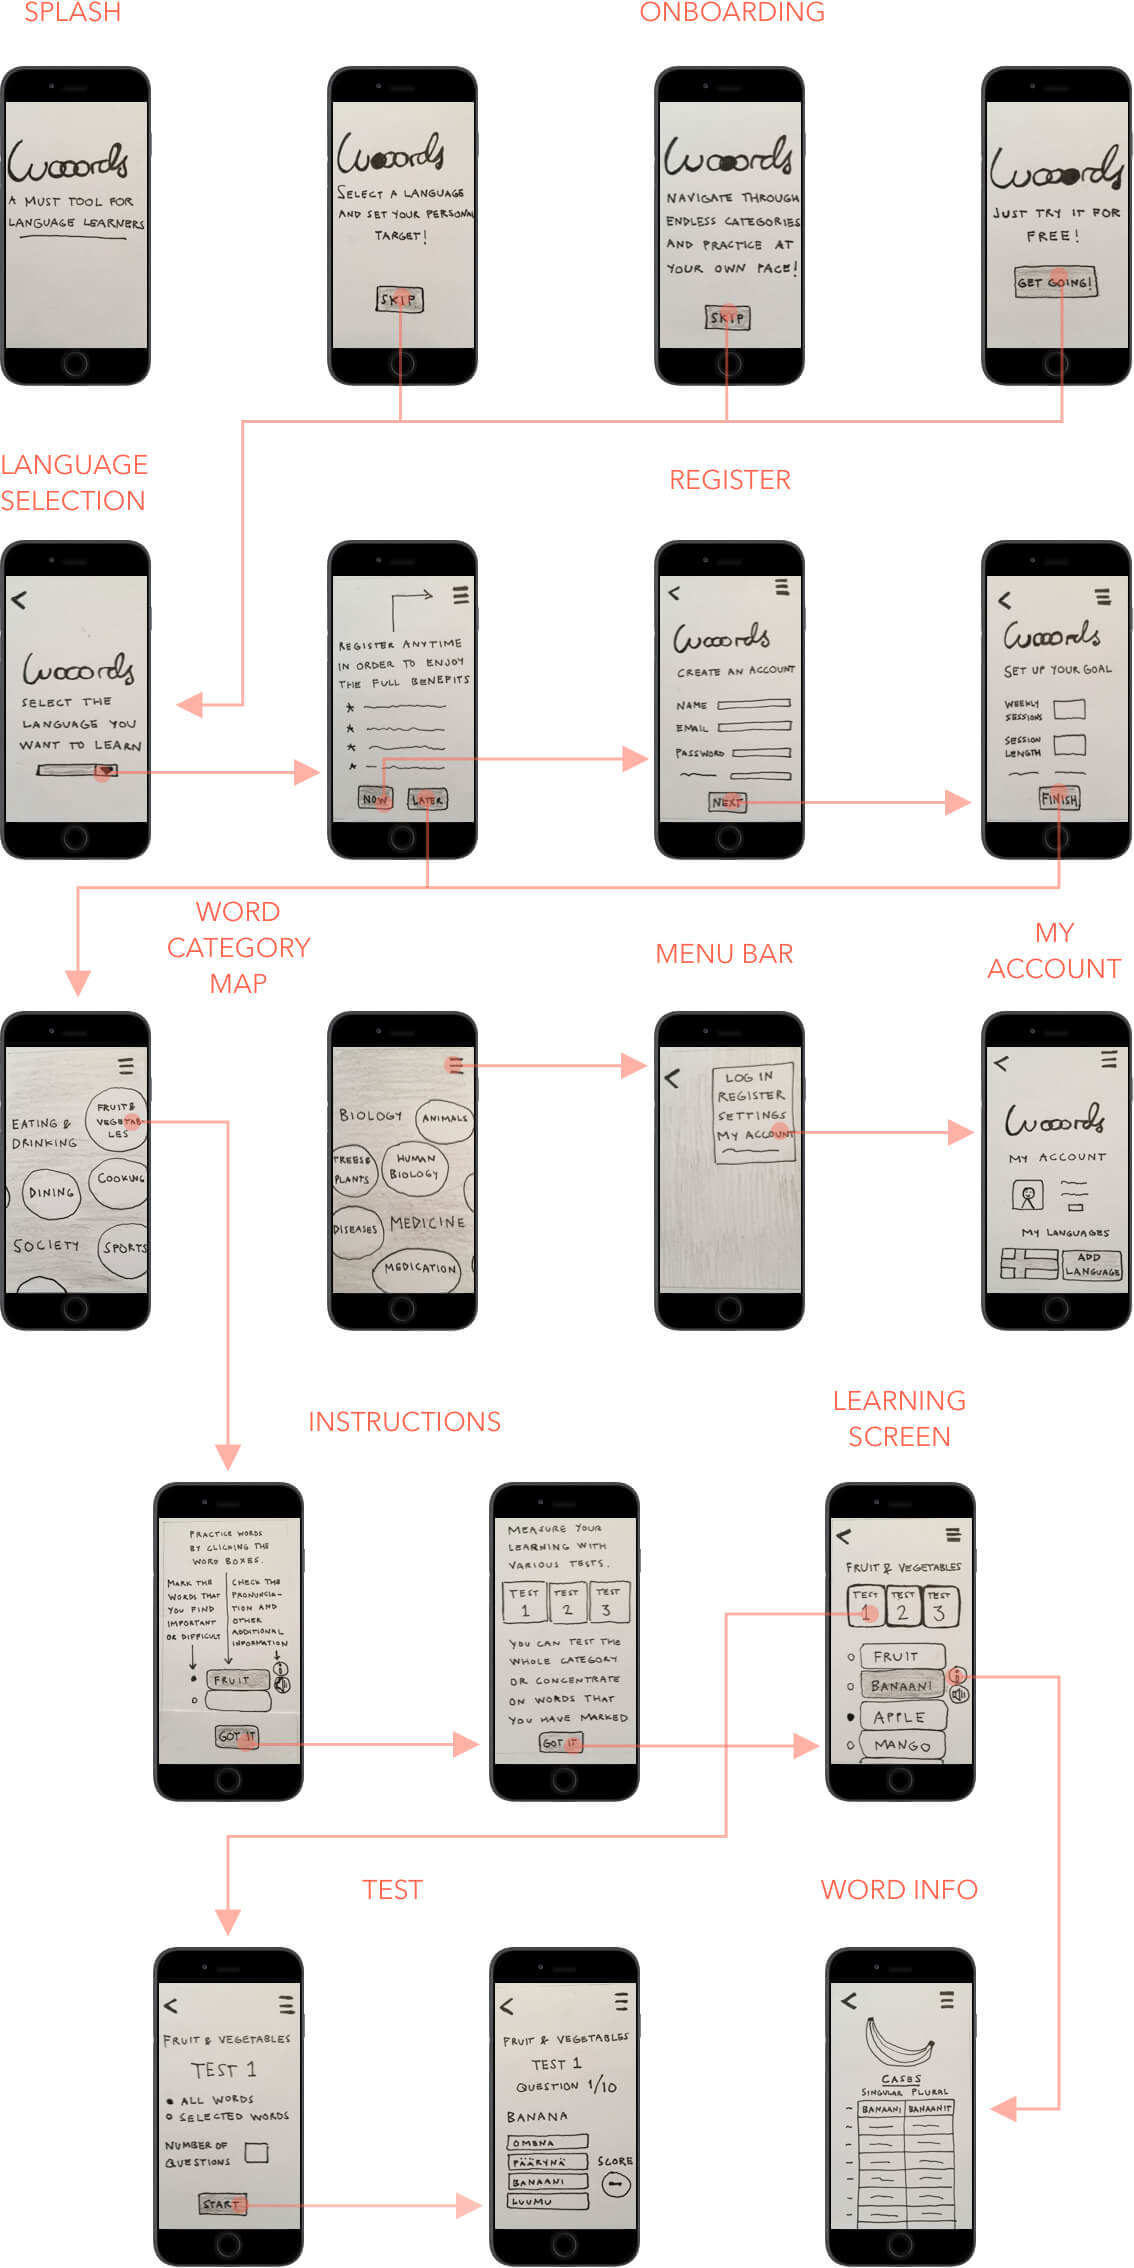 SPLASH
ONBOARDING
Wooords
A MUST TOOL FOR
LANGUAGE LEARNERS
Wooords
SELECT A LANGUAGE
AND SET YOUR PERSONAL
TARGET!
SKIP
Wooords
NAVIGATE THROUGH
ENDLESS CATEGORIES
AND PRACTICE AT
YOUR OWN PACE!
SKIP
Wooords
JUST TRY IT FOR
FREE!
GET GOING!
LANGUAGE
SELECTION
REGISTER
Wooords
SELECT THE
LANGUAGE YOU
WANT TO LEARN
REGISTER ANYTIME
IN ORDER TO ENJOY
THE FULL BENEFITS
NOW
LATER
Wooords
CREATE AN ACCOUNT
NAME
EMAIL
PASSWORD
NEXT
Wooords
SET UP YOUR GOAL
WEEKLY
SESSIONS
SESSION
LENGTH
FINISH
WORD
CATEGORY
MAP
MENU BAR
MY
ACCOUNT
FRUIT &
VEGETAB-
LES
EATING &
DRINKING
COOKING
DINING
SOCIETY
SPORTS
BIOLOGY
ANIMALS
TREES &
PLANTS
HUMAN
BIOLOGY
DISEASES
MEDICINE
MEDICATION
LOG IN
REGISTER
SETTINGS
MY ACCOUNT
Wooords
MY ACCOUNT
MY LANGUAGES
ADD
LANGUAGE
INSTRUCTIONS
LEARNING
SCREEN
PRACTICE WORDS
BY CLICKING THE
WORD BOXES.
MARK THE
WORDS THAT
YOU FIND
IMPORTANT
OR DIFFICULT
CHECK THE
PRONUNCIA-
TION AND
OTHER
ADDITIONAL
INFORMATION
FRUIT
i
GOT IT
MEASURE YOUR
LEARNING WITH
VARIOUS TESTS.
TEST 1
TEST 2
TEST 3
YOU CAN TEST THE
WHOLE CATEGORY
OR CONCENTRATE
ON WORDS THAT
YOU HAVE MARKED
GOT IT
FRUIT & VEGETABLES
TEST 1
TEST 2
TEST 3
FRUIT
BANAANI
i
APPLE
MANGO
TEST
WORD INFO
FRUIT & VEGETABLES
TEST 1
ALL WORDS
SELECTED WORDS
NUMBER OF
QUESTIONS
START
FRUIT & VEGETABLES
TEST 1
QUESTION 1/10
BANANA
OMENA
PÄÄRYNÄ
BANAANI
LUUMU
SCORE
CASES
SINGULAR PLURAL
BANAANI BANAANIT